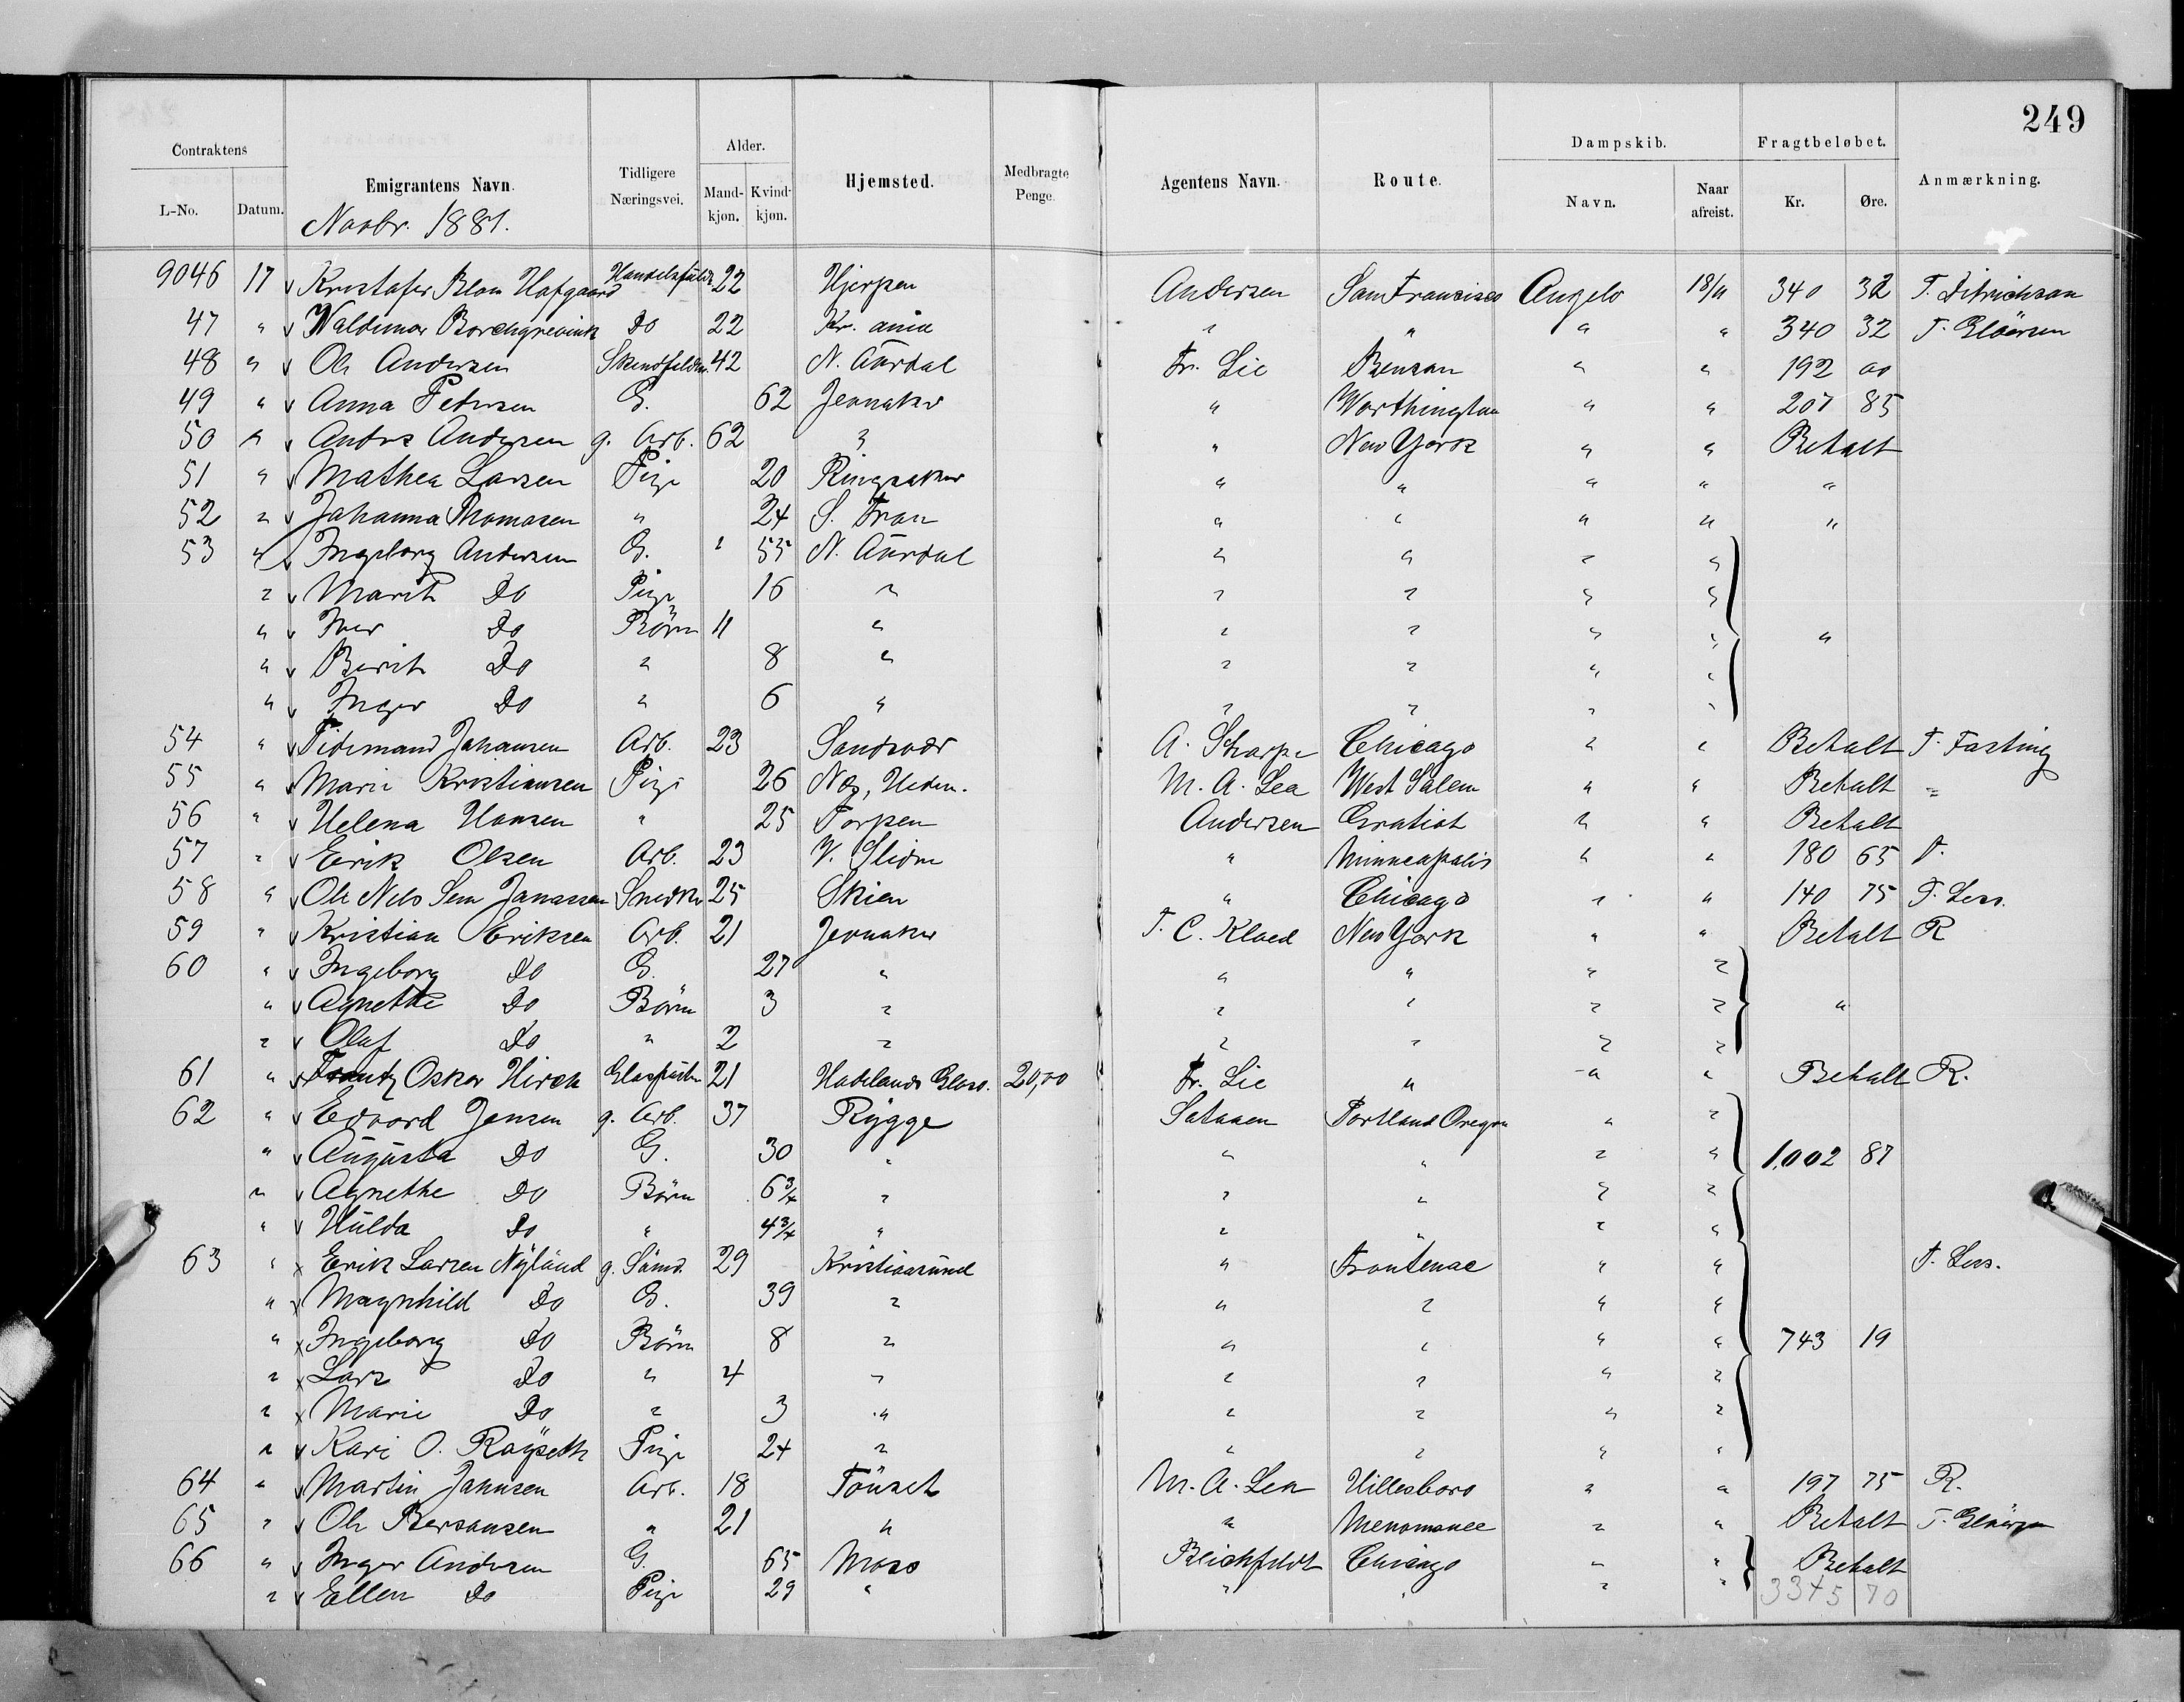 249
Contraktens Emigrantens Navn. Tidligere Næringsvei. Alder. Hjemsted. Medbragte Penge. Agentens Navn. Route. Dampskib. Fragtbeløbet. Anmærkning.
L-No. Datum. Mand-kjøn. Kvind-kjøn. Navn. Naar afreist. Kr. Øre.
Novbr. 1881.
9046 17 v Kristofer Blom Hofgaard 22 Hjerpen Andersen San Francisco Angelo 18/11 340 32 T. Ditrichson
47 " v Waldemar Borchgrevink Do 22 Kr. ania " " " " 340 32 T. Gløersen
48 " v Ole Andersen 42 N. Aurdal Fr. Lie Benson " " 192 00
49 " v Anna Petersen G. 62 Jevnaker " Worthington " " 207 85
50 " v Andrs Andersen g. Arb. 62 " " New York " " Betalt
51 " v Mathea Larsen Pige 20 Ringsaker " " " " "
52 " v Johanna Thomasen " 24 S. Fron " " " " "
53 " v Ingeborg Andersen G. " 55 N. Aurdal " " " "
" v Marit Do Pige 16 " " " " "
" v Iver Do Börn 11 " " " " " "
" v Berit Do " 8 " " " " "
" v Inger Do " 6 " " " " "
54 " v Tidemand Johansen Arb. 23 Sandsvær A. Sharpe Chicago " " Betalt T. Fasting
55 " v Marie Kristiansen Pige 26 Næs, Hedm. M. A. Lea West Salem " " Betalt "
56 " v Helena Hansen " 25 Torpen Andersen Gratiot " " Betalt
57 " v Erik Olsen Arb. 23 V. Slidre " Minneapolis " " 180 65 T.
58 " v Ole Nels Sem Janassen Snedker 25 Skien " Chicago " " 140 75 T. Less.
59 " v Kristian Eriksen Arb. 21 Jevnaker T. C. Kloed New York " " Betalt R
60 " v Ingeborg Do G. 27 " " " " "
" v Agnethe Do Börn 3 " " " " " "
" v Olaf Do " 2 " " " " "
61 " v Frantz Oskar Hirch 21 Hadelands Glasv. 20,00 Fr. Lie " " " Betalt R.
62 " v Edvard Jensen g. Arb. 37 Rygge Portland Oregon " "
" v Augusta Do G. 30 " " " " " 1,002 87
" v Agnethe Do Börn 6 3/4 " " " " "
" v Hulda Do " 4 3/4 " " " " "
63 " x Erik Larsen Nylund g. Sömd. 29 Kristiasund " Frontenac " " T. Less.
" x Magnhild Do G. 39 " " " " "
" x Ingeborg Do Börn 8 " " " " " 743 19
" x Lars Do " 4 " " " " "
" x Marie Do " 3 " " " " "
" v Kari O. Röyseth Pige 24 " " " " "
64 " v Martin Johnsen Arb. 18 Tönset M. A. Lea Hillesboro " " 197 75 R.
65 " v Ole Bersansen " 21 " " Menomanee " " Betalt T. Gløersen
66 " v Inger Andersen G. 65 Moss Blichfeldt Chicago " " Betalt
" v Ellen Do Pige 29 " " " " "
3345 70